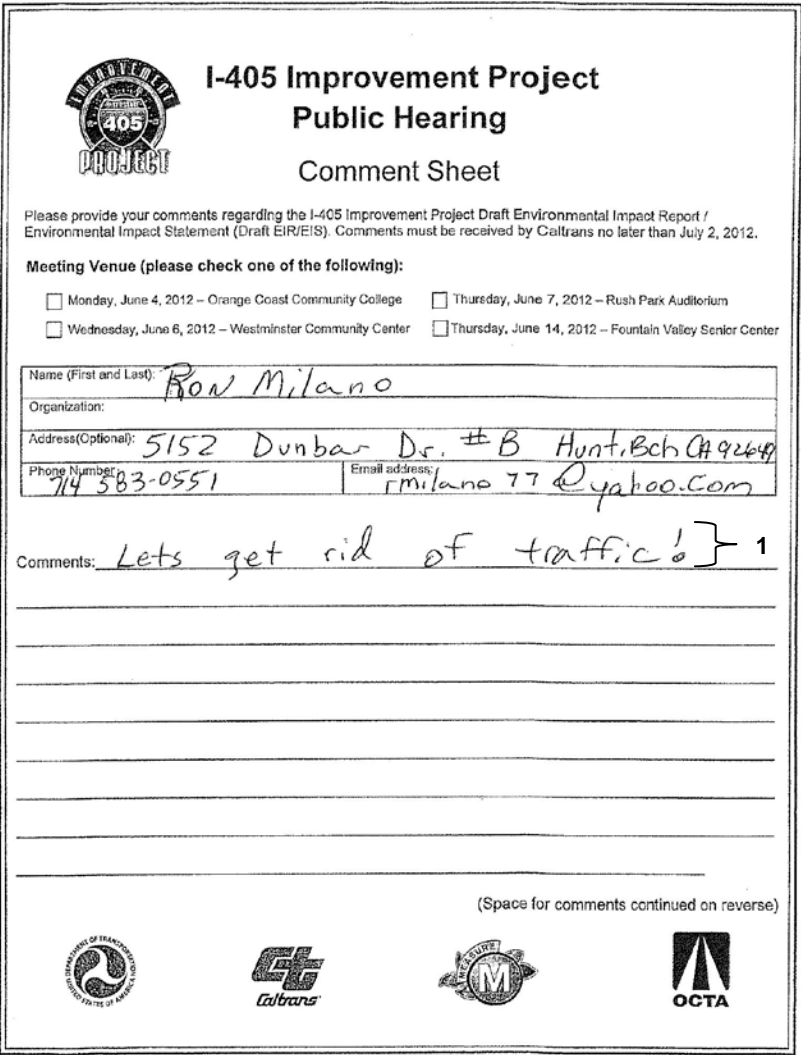 IMPROVEMENT
INTERSTATE
405
PROJECT
I-405 Improvement Project
Public Hearing
Comment Sheet
Please provide your comments regarding the I-405 Improvement Project Draft Environmental Impact Report /
Environmental Impact Statement (Draft EIR/EIS). Comments must be received by Caltrans no later than July 2, 2012.
Meeting Venue (please check one of the following):
Monday, June 4, 2012 – Orange Coast Community College
Thursday, June 7, 2012 – Rush Park Auditorium
Wednesday, June 6, 2012 – Westminster Community Center
Thursday, June 14, 2012 – Fountain Valley Senior Center
Name (First and Last): Ron Milano
Organization:
Address(Optional): 5152 Dunbar Dr. #B Hunt.Bch CA 92649
Phone Number: 714 583-0551
Email address: rmilano77@yahoo.com
Comments: Lets get rid of traffic! 1
(Space for comments continued on reverse)
DEPARTMENT OF TRANSPORTATION
UNITED STATES OF AMERICA
Ct
Caltrans
MEASURE
M
OCTA